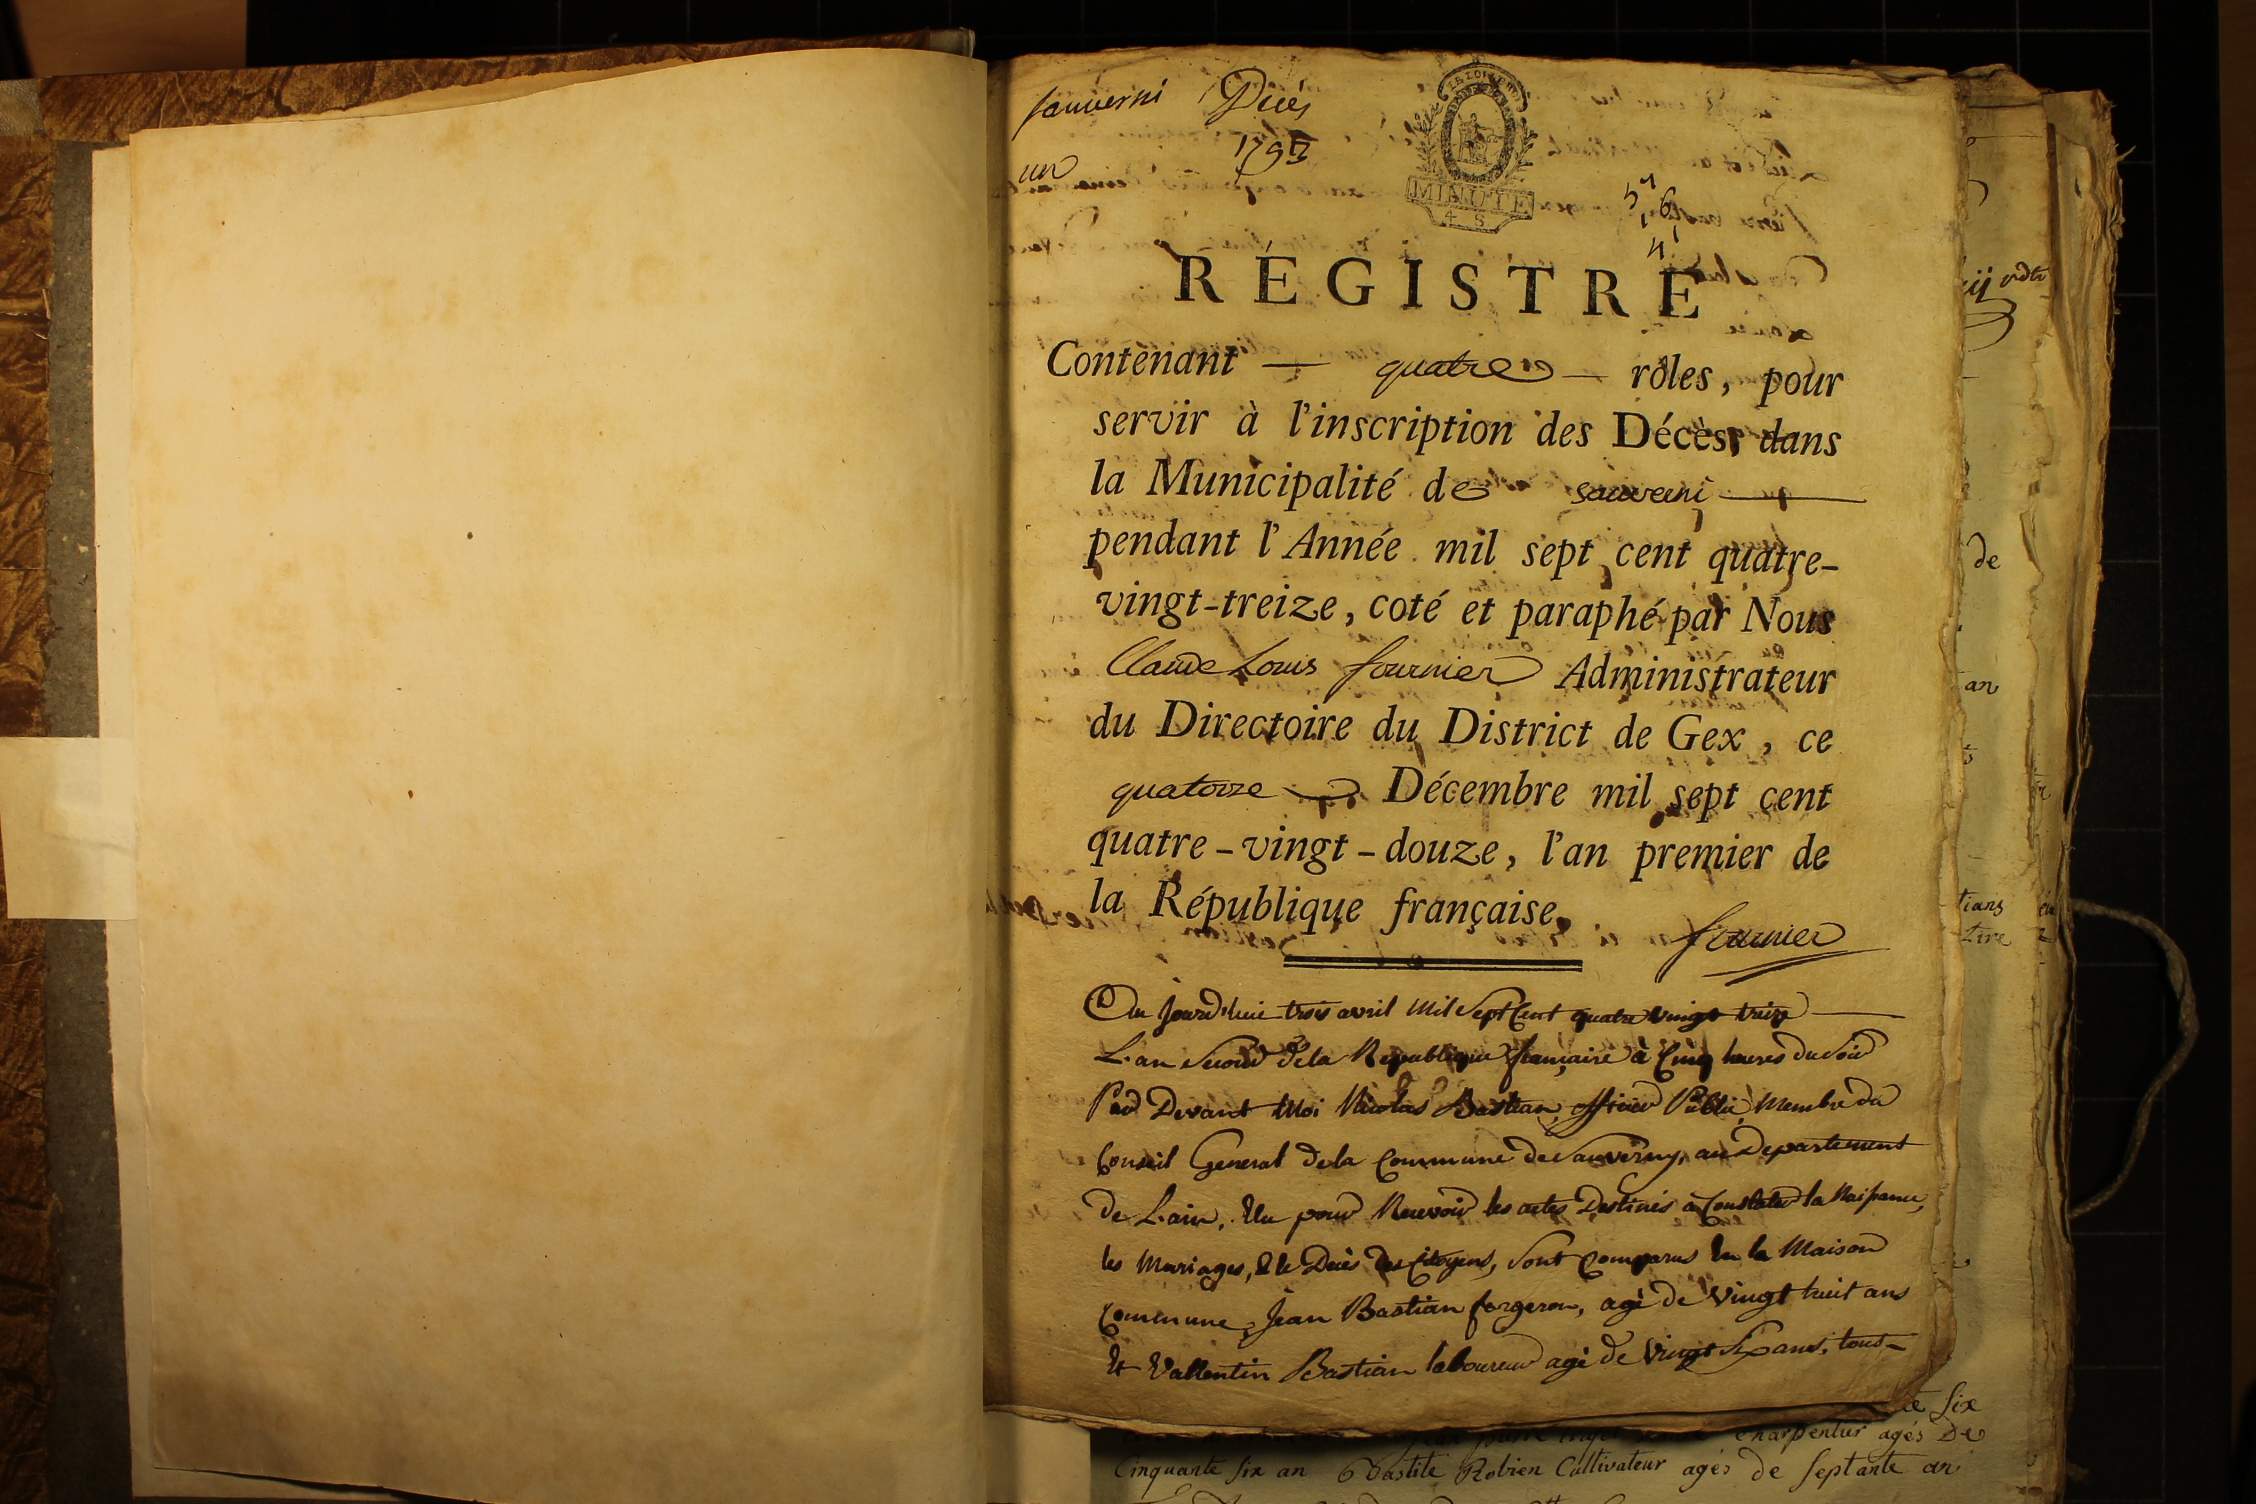 Sauverni Décès
un 1793
LA LOI
MINUTE
4 S
RÉGISTRE
Contenant — quatre — rôles, pour
servir à l'inscription des Décès, dans
la Municipalité de sauverni
pendant l'Année mil sept cent quatre-
vingt-treize, coté et paraphé par Nous
Claude Louis fournier Administrateur
du Directoire du District de Gex, ce
quatorze Décembre mil sept cent
quatre-vingt-douze, l'an premier de
la République française.
fournier
Au Jourd'hui trois avril Mil Sept Cent quatre vingt treize
L'an Second de la Republique française à Cinq heures du Soir
Par Devant Moi Nicolas Bastian, officier Public, Membre du
Conseil General de la Commune de Sauverny, au Departement
de L'ain, Elu pour Recevoir les actes Destinés à Constater la Naissance,
les Mariages, & le Décès des Citoyens, Sont Comparus En la Maison
Commune, Jean Bastian forgeron, agé de Vingt huit ans
Et Vallentin Bastian laboureur agé de Vingt Six ans, tous-
te Six
charpentier agés De
Cinquante Six an Robien Cultivateur agés de Septante an